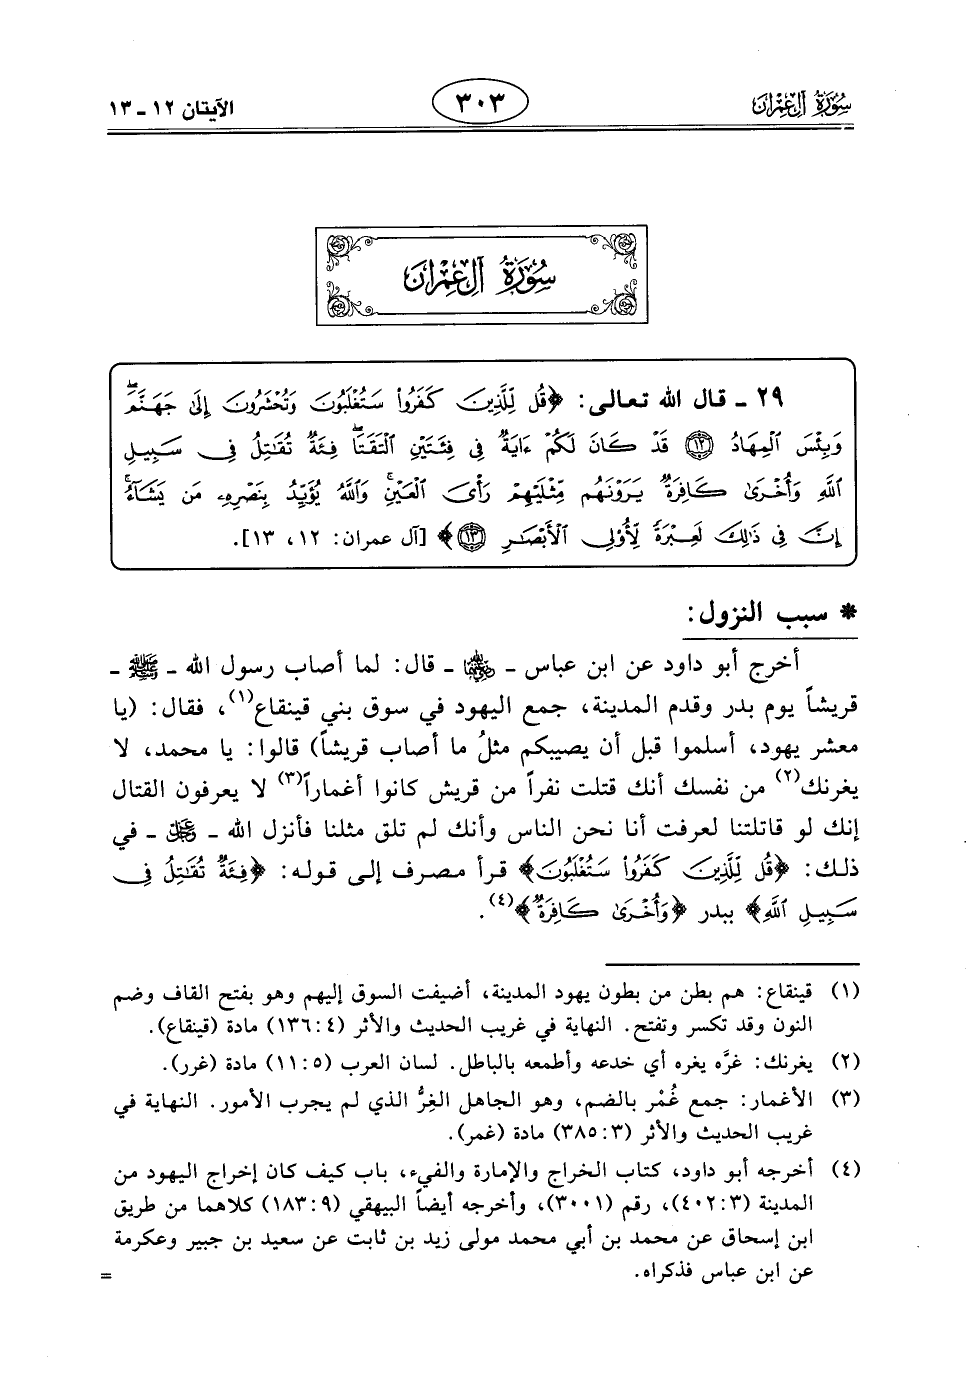 سورة آل عمران
٣٠٣
الآيتان ١٢ ـ ١٣
سُورَةُ آلِ عِمْرَان
٢٩ ـ قال الله تعالى: ﴿قُل لِّلَّذِينَ كَفَرُوا۟ سَتُغْلَبُونَ وَتُحْشَرُونَ إِلَىٰ جَهَنَّمَ ۖ
وَبِئْسَ ٱلْمِهَادُ ﴿١٢﴾ قَدْ كَانَ لَكُمْ ءَايَةٌ فِى فِئَتَيْنِ ٱلْتَقَتَا ۖ فِئَةٌ تُقَـٰتِلُ فِى سَبِيلِ
ٱللَّهِ وَأُخْرَىٰ كَافِرَةٌ يَرَوْنَهُم مِّثْلَيْهِمْ رَأْىَ ٱلْعَيْنِ ۚ وَٱللَّهُ يُؤَيِّدُ بِنَصْرِهِۦ مَن يَشَآءُ ۗ
إِنَّ فِى ذَٰلِكَ لَعِبْرَةً لِّأُو۟لِى ٱلْأَبْصَـٰرِ ﴿١٣﴾﴾ [آل عمران: ١٢، ١٣].
* سبب النزول:
أخرج أبو داود عن ابن عباس ـ رضي الله عنهما ـ قال: لما أصاب رسول الله ـ ﷺ ـ
قريشاً يوم بدر وقدم المدينة، جمع اليهود في سوق بني قينقاع(١)، فقال: (يا
معشر يهود، أسلموا قبل أن يصيبكم مثلُ ما أصاب قريشاً) قالوا: يا محمد، لا
يغرنك(٢) من نفسك أنك قتلت نفراً من قريش كانوا أغماراً(٣) لا يعرفون القتال
إنك لو قاتلتنا لعرفت أنا نحن الناس وأنك لم تلق مثلنا فأنزل الله ـ عز وجل ـ في
ذلك: ﴿قُل لِّلَّذِينَ كَفَرُوا۟ سَتُغْلَبُونَ﴾ قرأ مصرف إلى قوله: ﴿فِئَةٌ تُقَـٰتِلُ فِى
سَبِيلِ ٱللَّهِ﴾ ببدر ﴿وَأُخْرَىٰ كَافِرَةٌ﴾(٤).
(١) قينقاع: هم بطن من بطون يهود المدينة، أضيفت السوق إليهم وهو بفتح القاف وضم
النون وقد تكسر وتفتح. النهاية في غريب الحديث والأثر (٤: ١٣٦) مادة (قينقاع).
(٢) يغرنك: غرَّه يغره أي خدعه وأطمعه بالباطل. لسان العرب (٥: ١١) مادة (غرر).
(٣) الأغمار: جمع غُمْر بالضم، وهو الجاهل الغِرُّ الذي لم يجرب الأمور. النهاية في
غريب الحديث والأثر (٣: ٣٨٥) مادة (غمر).
(٤) أخرجه أبو داود، كتاب الخراج والإمارة والفيء، باب كيف كان إخراج اليهود من
المدينة (٣: ٤٠٢)، رقم (٣٠٠١)، وأخرجه أيضاً البيهقي (٩: ١٨٣) كلاهما من طريق
ابن إسحاق عن محمد بن أبي محمد مولى زيد بن ثابت عن سعيد بن جبير وعكرمة
عن ابن عباس فذكراه.
=